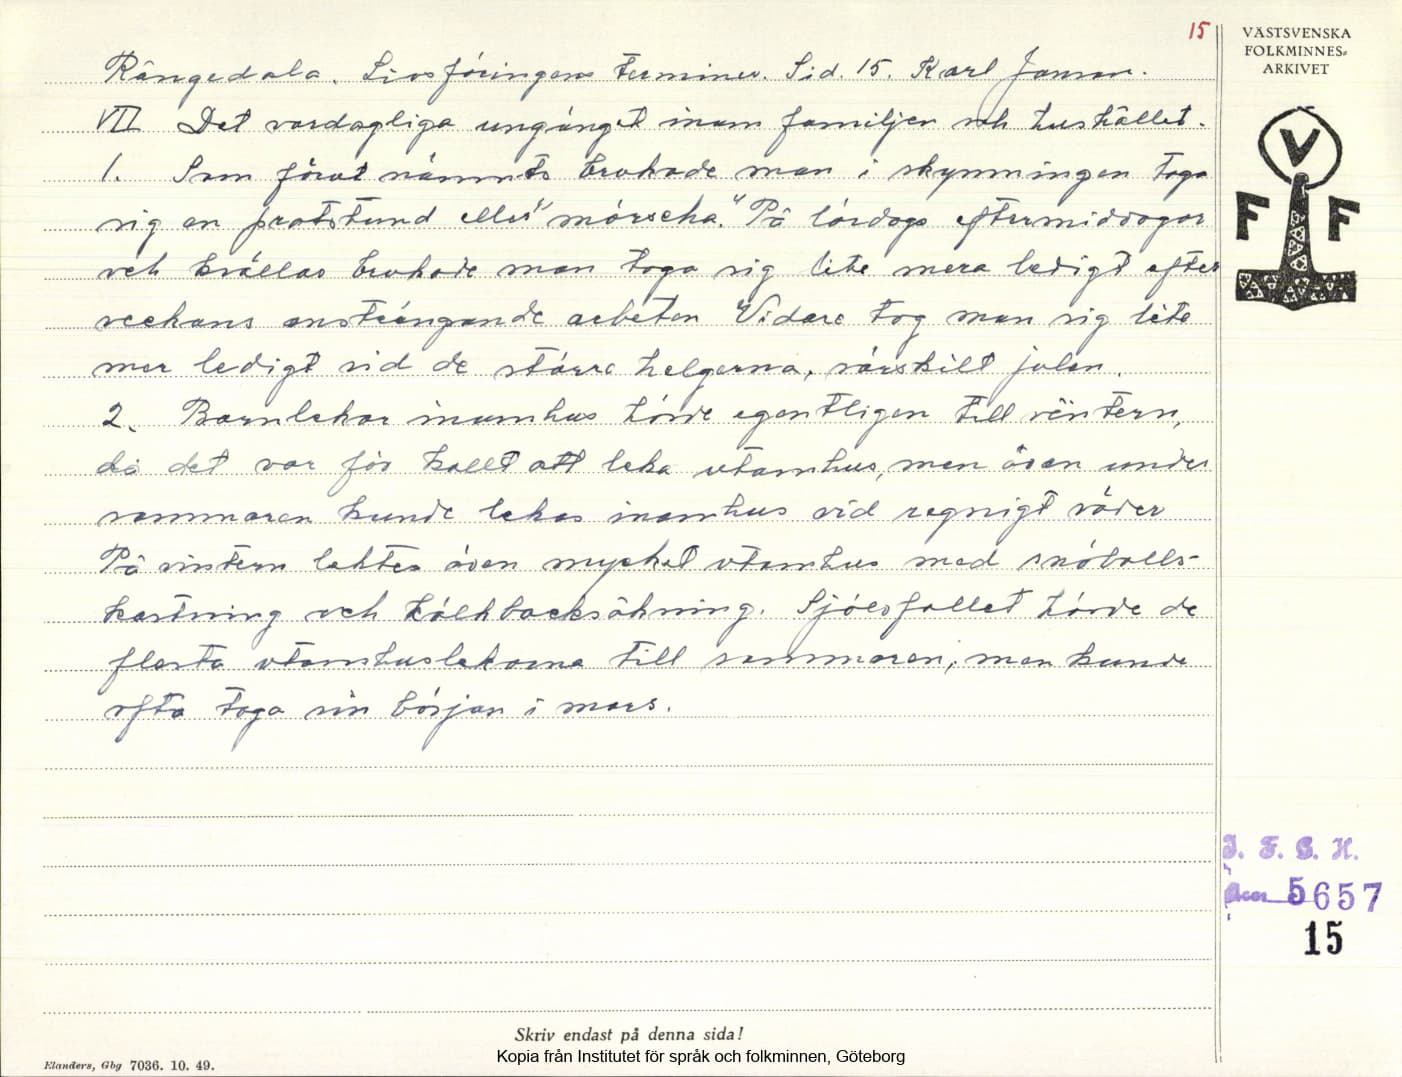 15
VÄSTSVENSKA
FOLKMINNES=
ARKIVET
Rångedala. Livsföringens terminer. Sid. 15. Karl Jonson.
VII Det vardagliga umgänget inom familjen och hushållet.
1. Som förut nämnts brukade man i skymningen taga
sig en pratstund eller "mörseha." På lördags eftermiddagar
och kvällar brukade man taga sig lite mera ledigt efter
veckans ansträngande arbeten Vidare tog man sig lite
mer ledigt vid de större helgerna, särskilt julen.
2. Barnlekar inomhus hörde egentligen till vintern,
då det var för kallt att leka utomhus, men även under
sommaren kunde lekas inomhus vid regnigt väder
På vintern lektes även mycket utomhus med snöbolls-
kastning och kälkbacksåkning. Självfallet hörde de
flesta utomhuslekarna till sommaren, men kunde
ofta taga sin början i mars.
V
F F
I. F. G. H.
Acc 5657
15
Skriv endast på denna sida!
Kopia från Institutet för språk och folkminnen, Göteborg
Elanders, Gbg 7036. 10. 49.